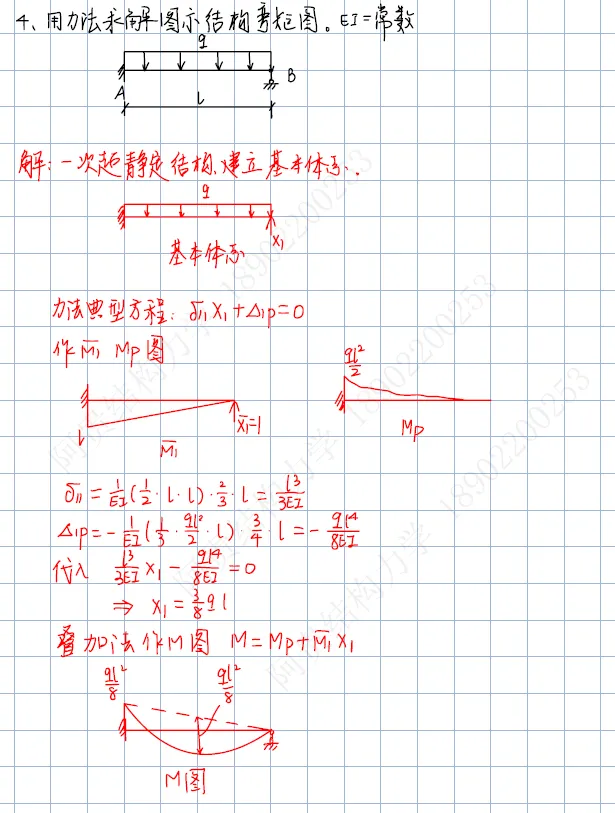 4、用力法求解图示结构弯矩图。EI=常数
q
A B
l
解:一次超静定结构,建立基本体系.
q
X₁
基本体系
力法典型方程: δ₁₁X₁+Δ₁p=0
作 M̄₁ Mp图
l X̄₁=1
M̄₁
ql²/2
Mp
δ₁₁ = 1/EI (1/2 · l · l) · 2/3 · l = l³/3EI
Δ₁p = - 1/EI (1/3 · ql²/2 · l) · 3/4 · l = - ql⁴/8EI
代入 l³/3EI X₁ - ql⁴/8EI = 0
⇒ X₁ = 3/8 ql
叠加法作M图 M=Mp+M̄₁X₁
ql²/8 ql²/8
M图
结构力学 18902200253